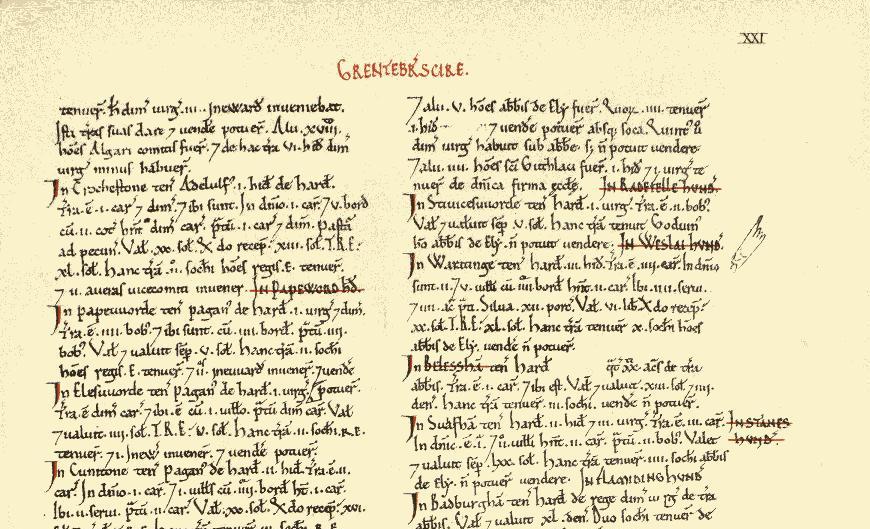 XXI
GRENTEBR̃SCIRE.
tenuer̃. h̃ dim̃ virg̃. iii. Ineward inveniebat.
Ista t̃ras suas dare 7 vende potuer̃. Alii. xviii.
hões Algari comitis fuer̃. 7 de hac t̃ra vi. hid̃ dim̃
virg̃ minus habuer̃.
In Crochestone ten̄ Adelulf̃. i. hid̃ de hard̃.
T̃ra. ē. i. car̃ 7 dim̃. 7 ibi sunt. In dñio. i. car̃. 7 v. bord̃
cū. ii. cot̃ hñt dim̃ car̃. p̃tū. i. car̃ 7 dim̃. Pastã
ad pecuñ. Val̃. xx. sol̃. X do recep̃. xiii. sol̃. T.R.E.
xl. sol̃. Hanc t̃rã. ii. sochi hões regis. E. tenuer̃.
7 ii. averas vicecomiti invener̃. In Papeword hd̃.
In papeuuorde ten̄ pagan̄ de hard̃. i. virg̃ 7 dim̃.
T̃ra. ē. iiii. bob̃. 7 ibi sunt. cū. iiii. bord̃. p̃tū. iiii.
bob̃. Val̃ 7 valuit sep̃. v. sol̃. Hanc t̃rã. ii. sochi
hões regis. E. tenuer̃. 7 ii. ineuuard invener̃. 7 vende
potuer̃.
In Elesuuorde ten̄ pagan̄ de hard̃. i. virg̃
T̃ra. ē dim̃ car̃. 7 ibi. ē cū. i. uillo. p̃tū dim̃ car̃. Val̃
7 valuit. iiii. sol̃. T.R.E. v. sol̃. Hanc t̃rã. ii. sochi. R.E.
tenuer̃. 7 i. Inew̃ invener̃. 7 vende potuer̃.
In Cunitone ten̄ Pagan̄ de hard̃. ii. hid̃. T̃ra ē. ii.
car̃. In dñio. i. car̃. 7 ii. uill̃i cū. iiii. bord̃ hñt. i. car̃.
Ibi. ii. serui. p̃tū. ii. car̃. Val̃. xx. sol̃. X do recep̃. xvi.
7 alii. v. hões abb̃is de Ely fuer̃. Quoꝝ. iiii. tenuer̃
i. hid̃ 7 vende potuer̃ absq̃ soca. Quint̃ ũ
dim̃ virg̃ habuit sub abb̃e. s; ñ potuit vendere.
7 alii. iii. hões sc̃i Guthlaci fuer̃. i. hid̃ 7 i. virg̃ te
nuer̃ de dñica firma eccłe. In Radefelle hund̃.
In Stiuicesuuorde ten̄ hard̃. i. virg̃. T̃ra. ē. ii. bob̃.
Val̃ 7 valuit sep̃. v. sol̃. Hanc t̃rã tenuit Goduin̄
hō abb̃is de Ely. ñ potuit vendere. In Weslai hund̃.
In Wartange ten̄ hard̃. iii. hid̃. T̃ra. ē. iiii. car̃. In dñio
sunt. ii. 7 v. uill̃i cū. iii. bord̃ hñt. ii. car̃. Ibi. iii. serui.
7 iiii. ac̃ p̃ti. Silua. xii. porc̃. Val̃. vi. lib̃. X do recep̃
xx. sol̃. T.R.E. xl. sol̃. Hanc t̃rã tenuer̃ x. sochi hões
abb̃is de Ely. vende ñ potuer̃.
In Belesshā ten̄ hard̃ q̃t xx. acs̃ de t̃ra
abb̃is. T̃ra. ē. i. car̃. 7 ibi est. Val̃ 7 valuit. xiii. sol̃ 7 iiii.
den̄. Hanc t̃rã tenuer̃. iii. sochi. vende ñ potuer̃.
In Suafhā ten̄ hard̃. ii. hid̃ 7 iii. virg̃. T̃ra. ē. iii. car̃. In Stanes
hund̃.
In dñio. ē. i. 7 ii. uill̃i hñt. ii. car̃. p̃tū. ii. bob̃. Valet
7 valuit sep̃. lxx. sol̃. Hanc t̃rã tenuer̃. iii. sochi abb̃is
de Ely. ñ potuer̃ vendere. In Flamiding hund̃
In Badburghā ten̄ hard̃ de rege dim̃ virg̃ de t̃ra
abb̃is Ely. Valuit xl. den̄. Duo sochi tenuer̃ de